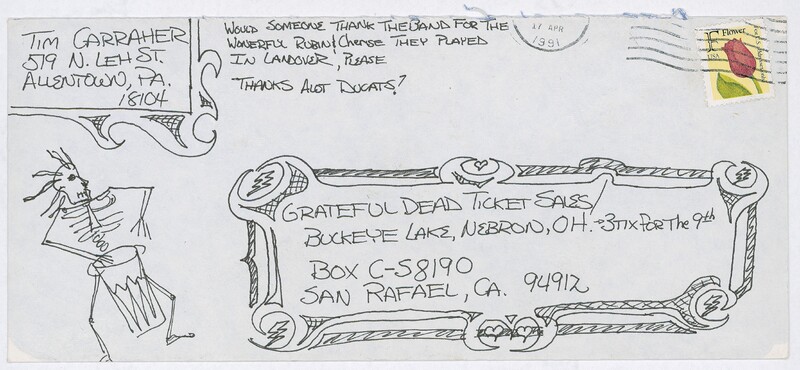 TIM CARRAHER
519 N. LEH ST.
ALLENTOWN, PA.
18104
WOULD SOMEONE THANK THE BAND FOR THE
WONERFUL RUBIN & CHERISE THEY PLAYED
IN LANDOVER, PLEASE
THANKS ALOT DUCATS!
17 APR
1991
F Flower
USA
GRATEFUL DEAD TICKET SALES/
BUCKEYE LAKE, NEBRON, OH. → 3TIX FOR THE 9th
BOX C-S8190
SAN RAFAEL, CA. 94912